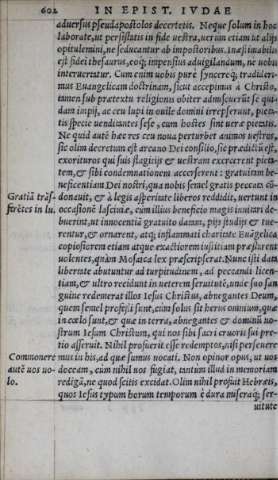 602 IN EPIST. IVDAE
aduersus pseudapostolos decertetis. Neque solum in hoc
laborate, ut persistatis in fide uestra, uerum etiam ut alijs
opitulemini, ne seducantur ab impostoribus. Inæstimabilis
est fidei thesaurus, eoq; impensius aduigilandum, ne uobis
intercuertatur. Cum enim uobis pure syncereq; tradideri-
mus Euangelicam doctrinam, sicut accepimus à Christo,
tamen sub prætextu religionis obiter admiscuerũt se qui-
dam impij, ac ceu lupi in ouile domini irrepserunt, pieta-
tis specie uenditantes sese, cum hostes sint ueræ pietatis.
Ne quid autē hæc res ceu noua perturbet animos uestros,
sic olim decretum est arcano Dei consilio, sic prædictũ est,
exorituros qui suis flagitijs & uestram exercerent pieta-
tem, & sibi condemnationem accerserent: gratuitam be-
neficentiam Dei nostri, qua nobis semel gratis peccata cō-
Gratiã trãs- donauit, & à legis asperitate liberos reddidit, uertunt in
ferētes in lu. occasionē lasciuiæ, cùm illius beneficio magis inuitari de-
buerint, ut innocentiã gratuito datam, pijs studijs & tue-
rentur, & ornarent, atq; inflammati charitate Euãgelica
copiosiorem etiam atque exactiorem iustitiam præstarent
uolentes, quàm Mosaica lex præscripserat. Nunc isti data
libertate abutuntur ad turpitudinem, ad peccandi licen-
tiam, & ultro recidunt in ueterem seruitutē, unde suo san
guine redemerat illos Iesus Christus, abnegantes Deum,
quem semel professi sunt, cùm solus sit herus omnium, quæ
in cœlo sunt, & quæ in terra, abnegantes & dominũ no-
strum Iesum Christum, qui nos sibi sacri cruoris sui pre-
tio asseruit. Nihil profuerit esse redemptos, nisi perseuere
Commonere mus in his, ad quæ sumus uocati. Non opinor opus, ut uos
autē uos uo- doceam, cùm nihil uos fugiat, tantùm illud in memoriam
lo. redigã, ne quod scitis excidat. Olim nihil profuit Hebræis,
quos Iesus typum horum temporum è dura miseraq; ser-
uitute